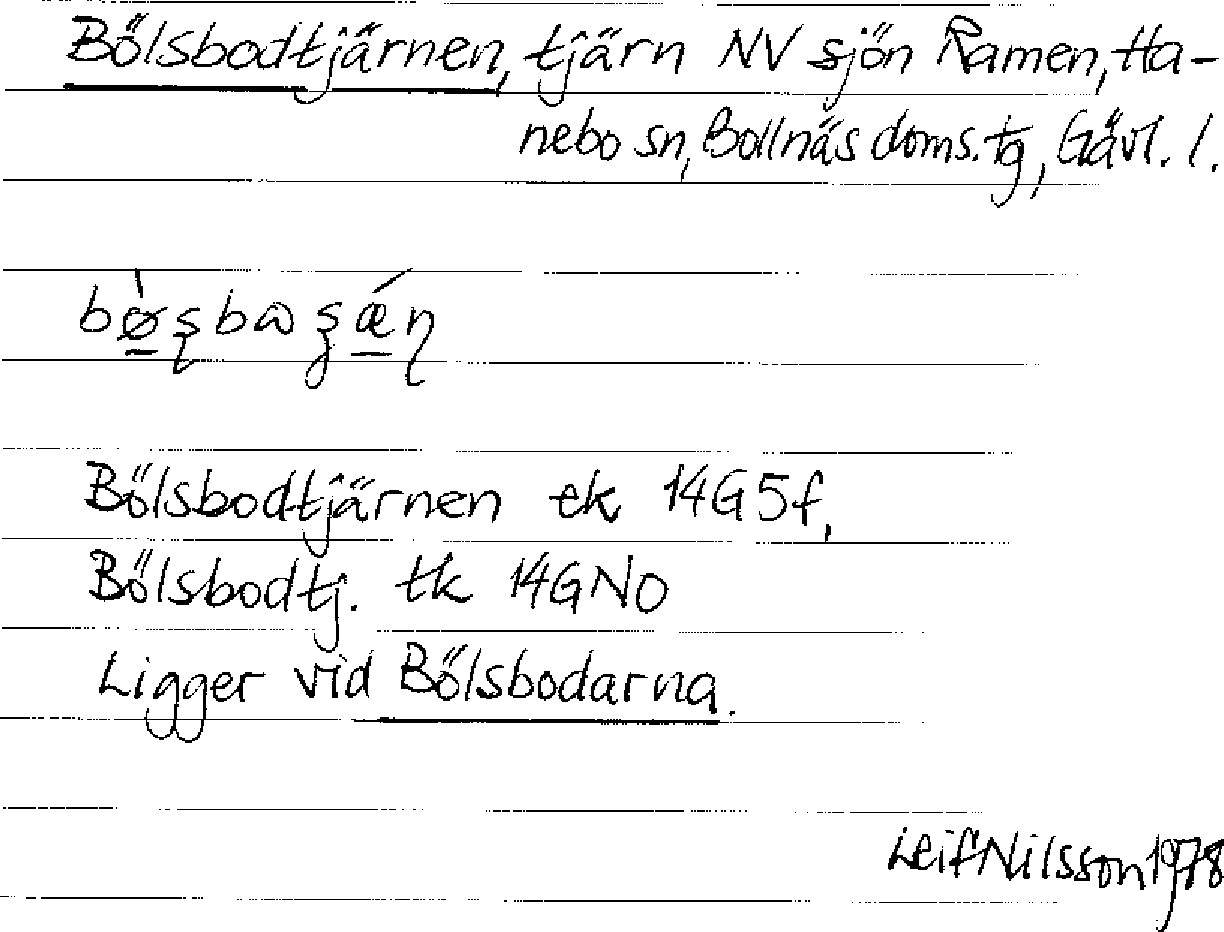 Bölsbodtjärnen, tjärn NV sjön Ramen, Ha-
nebo sn, Bollnäs doms. tg, Gävl. l.
Bölsbodtjärnen ek 14G5f,
Bölsbodtj. tk 14GNO
Ligger vid Bölsbodarna.
Leif Nilsson 1978